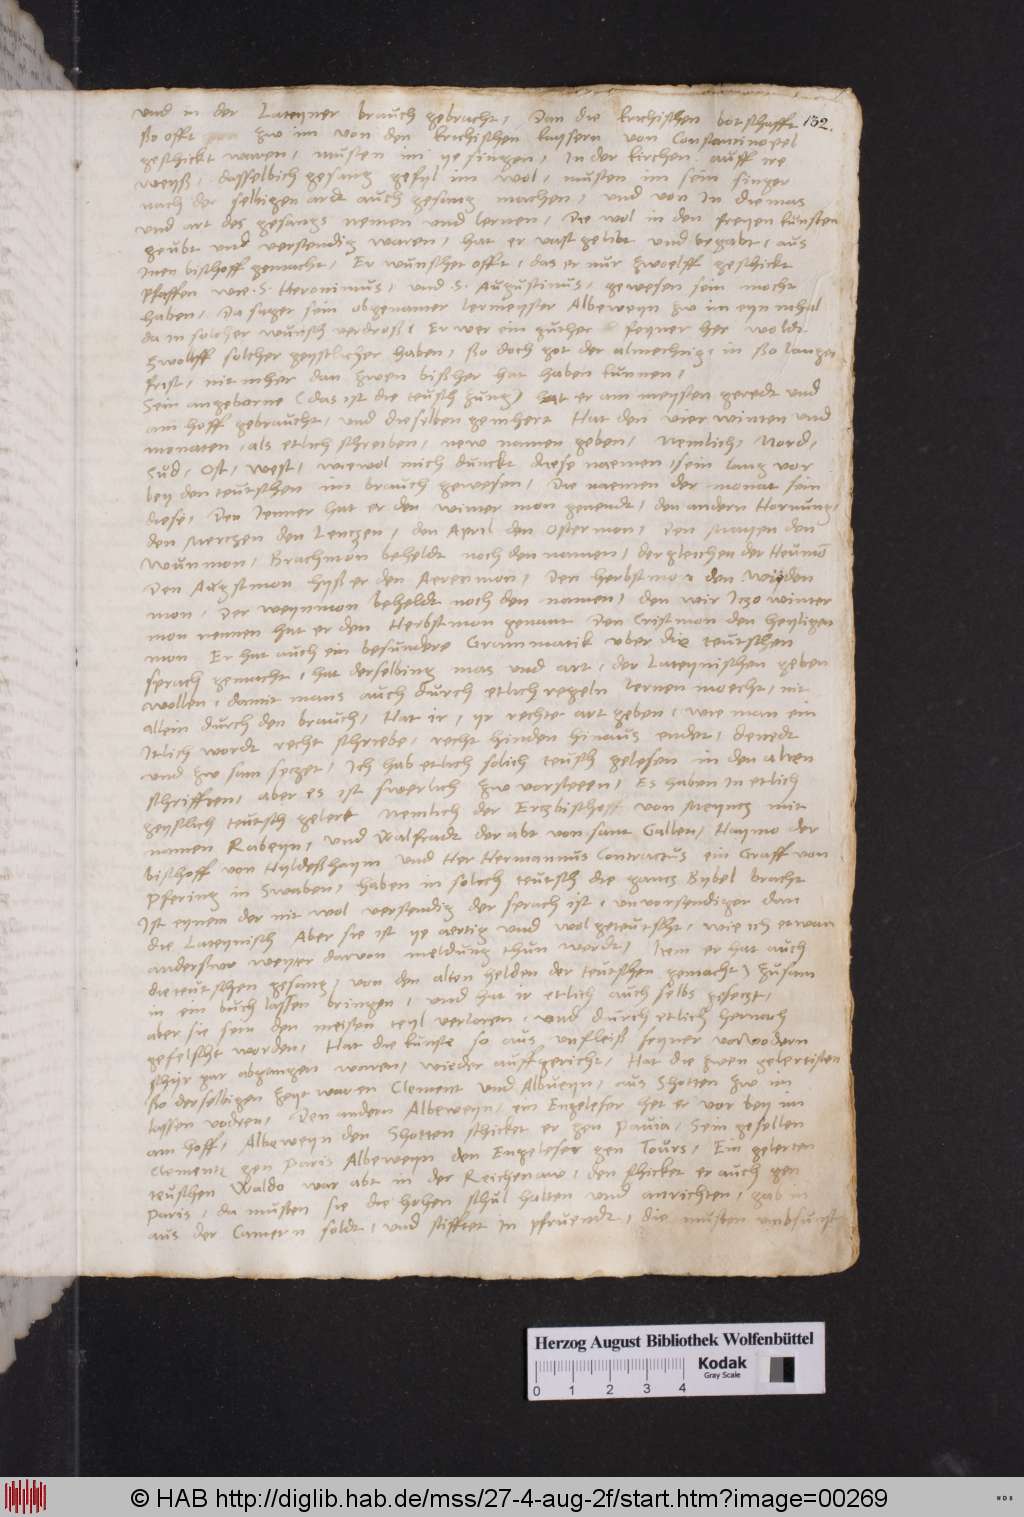 132.
und in der Lateyner brauch gebracht, Dan die krichischen botschafft
ßo offt zw im von den krichischen kaysern von Constantinopel
geschickt waren, musten im ye singen, In der kirchen auff ire
weyß, dasselbich gesang gefyl im wol, musten im sein singer
nach der selbigen ardt auch gesang machen, und von In die mas
und art des gesangs nemen und lernen, Die wol in den freyen kunsten
geubt und verstendig waren, hat er vast gelibt und begabt, aus
Inen bischoff gemacht, Er wunschet offt, das er nur zwoelff geschickt
pfaffen wie .S. Heronimus, und .S. Augustinus, gewesen sein mocht
haben, Da saget sein obgenanter lermeyster Albeweyn zw im eyn mhal
da in solcher wunsch verdroß, Er wer ein guther feyner her woldt
Zwolff solcher geystlicher haben, ßo doch got der almechtig, in ßo langer
frist, nit mher dan zwen bißher hat haben kunnen,
Sein angeborne (das ist die teusch zung) hat er am meysten geredt und
am hoff gebraucht, und dieselben gemhert Hat den vier winten und
monaten, als etlich schreiben, new namen geben, Nemlich, Nord,
Sud, Ost, West, wiewol mich dunckt diese naemen, sein lang vor
bey den teutschen im brauch gewesen, Die naemen der monat sein
diese, Den Jenner hat er den winter mon genendt, den andern Hornung,
den Merczen den Lenczen, den April den Ostermon, Den Mayen den
wunmon, Brachmon beheldt noch den namen, dergleichen der Heumo
Den Augstmon hyß er den Aerenmon, Den herbstmon den widen
mon, Der weynmon beheldt noch den namen, den wir Iczo winter
mon nennen hat er den Herbstmon genant Den Cristmon den heyligen
mon Er hat auch ein besundere Grammatik uber die teutschen
sprach gemacht, hat derselbing mas und art, der Lateynischen geben
wollen, damit mans auch durch etlich regeln lernen moecht, nit
allein durch den brauch, Hat ir, yr rechte art geben, wie man ein
Itlich wordt recht schriebe, recht hinden hinaus endet, bewedt
und zw sam seczet, Ich hab etlich solich teusch gelesen in den alten
schrifften, aber es ist swerlich zw vorsteen, Es haben In etlich
geystlich teutsch gelert Nemlich der Erczbischoff von Meyncz mit
namen Rabeyn, und Walfradt der abt von sant Gallen, Haymo der
bischoff von Hyldeßhaym und Her Hermannus Contractus ein Graff von
Pfering in Swaben, haben in solich teutsch die gancz Bybel bracht
Ist eynem der nit wol verstendig der sprach ist, unvorstendiger dan
die Lateynisch Aber sie ist ye aertig und wol geteutscht, wie ich etwan
anderßwo weyter darvon meldung thun werdt, Item er hat auch
die teutschen gesang, von den alten helden der teutschen gemacht, zusam
in ein buch lassen bringen, und hat ir etlich auch selbs geseczt,
aber sie sein den meisten teyl verloren, und durch etlich hernach
gefelscht worden, Hat die kunste so aus unfleiß seyner vorvodern
schyr gar abgangen waren, wieder auffgericht, Hat die zwen gelertisten
ßo derselbigen zeyt waren Clement und Albueyn, aus Shotten zw im
lassen vodren, Den andern Albeweyn, ein Engeleser het er vor bey im
am hoff, Albeweyn den Shotten schicket er gen Pavia, Sein gesellen
Clement gen Paris Albeweyn den Engeleser gen Tours, Ein gelerten
teuschen Waldo war abt in der Reichenaw, den schicket er auch gen
Paris, da musten sie die hohen schul halten und anrichten, gab in
aus der Camern soldt, und stifftet in pfruendt, die musten umbsunst
Herzog August Bibliothek Wolfenbüttel
Kodak
Gray Scale
0 1 2 3 4
© HAB http://diglib.hab.de/mss/27-4-aug-2f/start.htm?image=00269